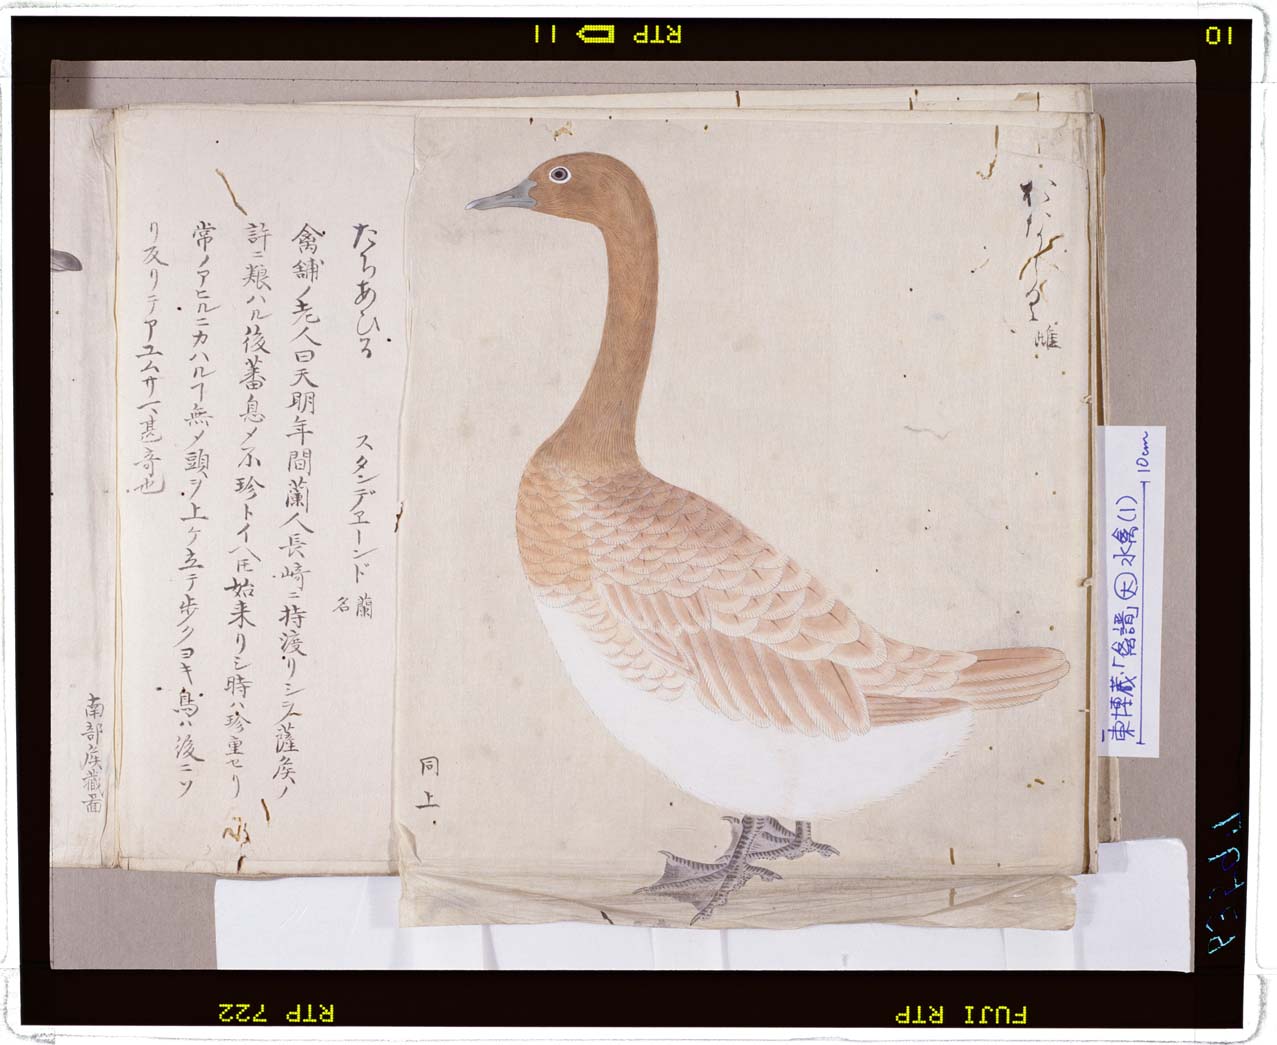 雌
同上
たちあひる
スタンデヱーンド 蘭名
禽舗ノ老人曰天明年間蘭人長崎ニ持渡リシヲ薩侯ノ
許ニ粮ハル後蕃息〆不珍トイヘ𪜈始来リシ時ハ珍重セリ
常ノアヒルニカハルヿ無〆頭ヲ上ケ立テ歩クヨキ鳥ハ後ニソ
リ反リテアユムサマ甚奇也
南部侯蔵図
東博蔵「禽譜」 水禽(1)
10cm
RTP 11
10
RTP 722
FUJI RTP